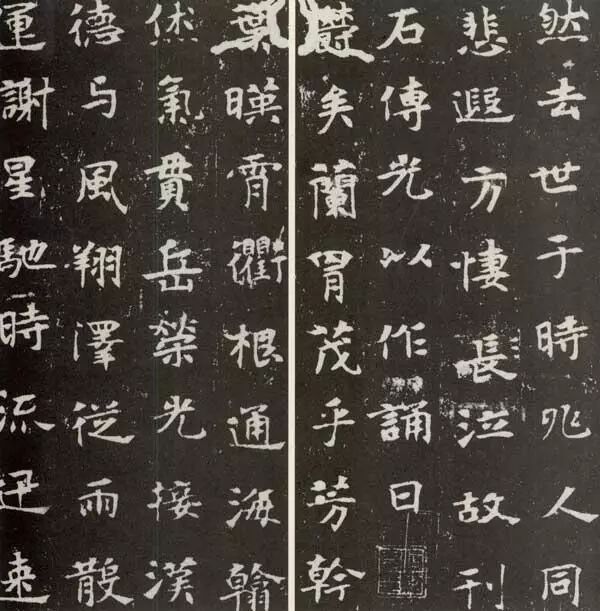 然去世于時兆人同
悲遐方悽長泣故刊
石傳光以作誦曰
鬱矣蘭胃茂乎芳幹
葉暎霄衢根通海翰
烋氣貫岳榮光接漢
德与風翔澤從雨散
運謝星馳時流迅速